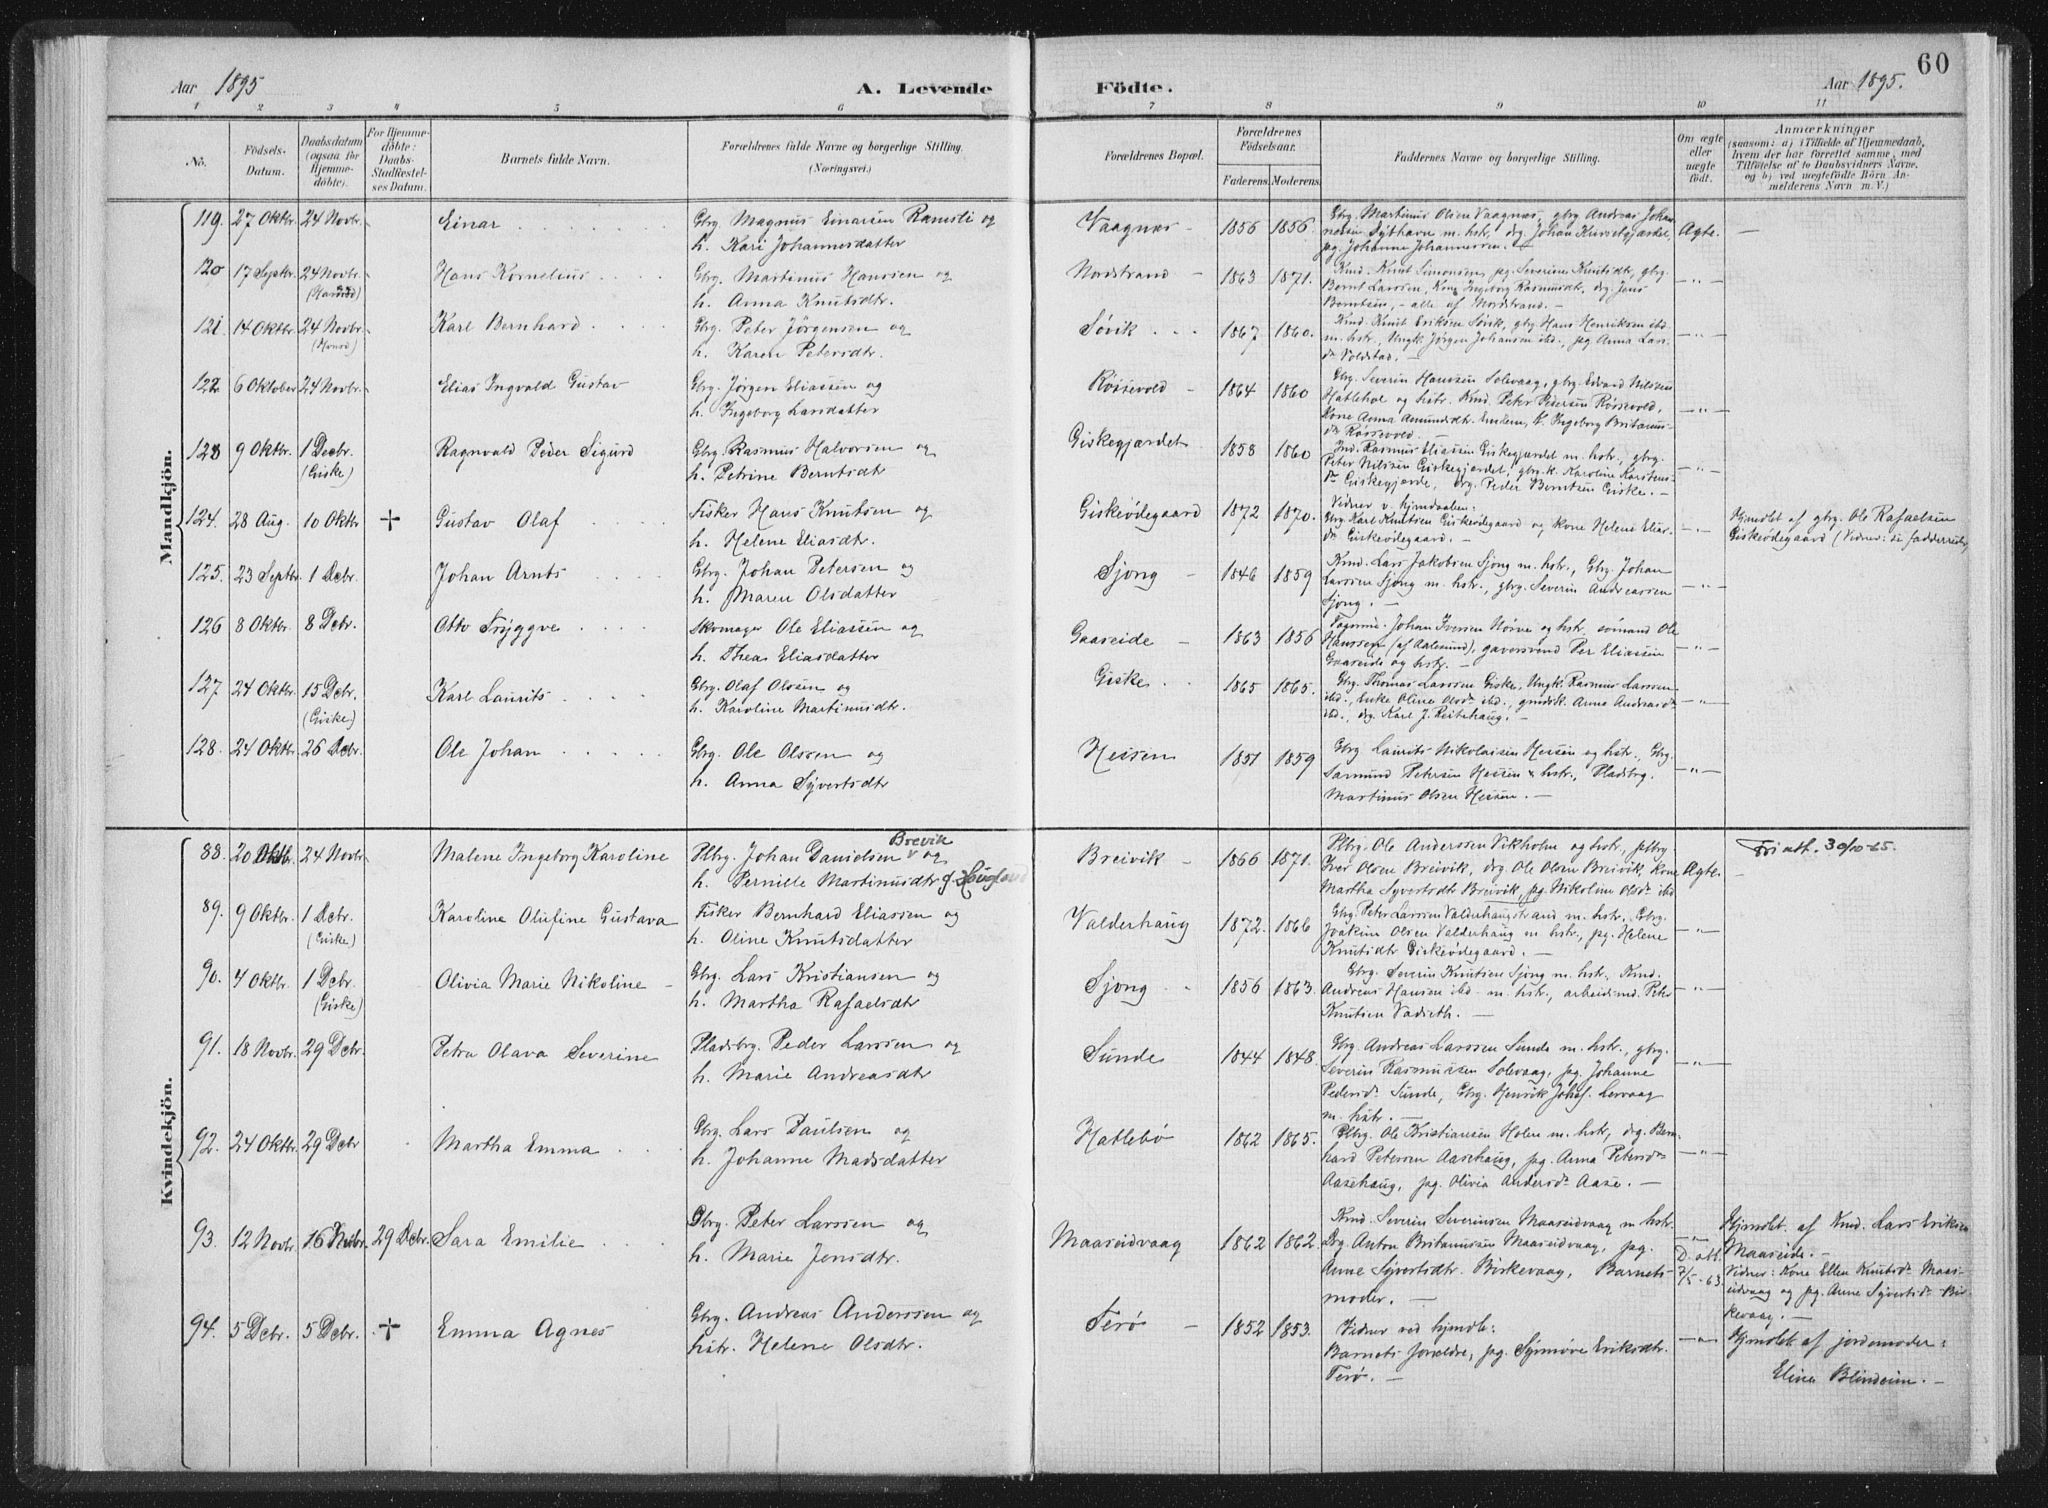 60
Aar 1895
A. Levende
Födte.
Aar 1895.
1 2 3 4 5 6 7 8 9 10 11
No.
Födsels-
Datum.
Daabsdatum
(ogsaa for
Hjemme-
döbte).
For Hjemme-
döbte:
Daabs-
Stadfæstel-
ses Datum.
Barnets fulde Navn.
Forældrenes fulde Navne og borgerlige Stilling.
(Næringsvei.)
Forældrenes Bopæl.
Forældrenes
Födselsaar.
Faderens. Moderens.
Faddernes Navne og borgerlige Stilling.
Om ægte
eller
uægte
født.
Anmærkninger
(saasom: a) i Tilfælde af Hjemmedaab,
hvem der har forrettet samme, med
Tilföielse af to Daabsvidners Navne,
og b) ved uægtefödte Börn An-
melderens Navn m. V.)
Mandkjön.
119. 27 Oktbr. 24 Novbr. Einar
Gbrg. Magnus Einarsen Ramsli og
h. Kari Johannesdatter
Vaagnæs - 1856 1856.
Gbrg. Martinus Olsen Vaagnæs, gbrg Andreas Johan-
nessen m. hstr, drg. Johan
pg. Johanne Johannessen. -
Ægte. -
120 17 Septbr. 24 Novbr. Hans Kornelius
Gbrg. Martinus Hanssen og
h. Anna Knutsdtr.
Nordstrand - 1863 1871.
Kmd. Knut Simonsen, pg. Severine Knutsdt, gbrg.
Bernt Larssen, Kone Ingeborg Rasmusdt, drg. Jens
Berntsen, - alle af Nordstrand. -
- " -
121 14 Oktbr. 24 Novbr. Karl Bernhard
Gbrg. Peter Jörgensen og
h. Karen Petersdtr.
Søvik 1867 1860.
Kmd. Knut Eriksen Søvik, gbrg Hans Henriksen ibd
m. hstr, Ungk. Jørgen Johansen ibd., pg Anna Lars-
dr Voldstad. -
- " -
122 6 Oktober 24 Novbr. Elias Ingvald Gustav
Gbrg. Jörgen Eliassen og
h. Ingeborg Larsdatter
Røssevold - 1864 1860
Gbrg. Severin Hanssen Solevaag, gbrg. Edvard Nilssen
Hatlehol og hstr. Kmd. Peter Pedersen Røssevold,
Kone Anna Amundsdtr. Emblem, Ingeborg Britanus-
dr Røssevold. -
- " -
123 9 Oktbr. 1 Decbr. Ragnvald Peder Sigurd
(Giske)
Gbrg. Rasmus Halvorsen og
h. Petrine Berntsdtr
Giskegjærdet 1858 1860
Ind. Rasmus Eliassen Giskegjærdet m. hstr., gbrg.
Peter Nilssen Giskegjærdet, gbrg. k. Karoline Karstens-
dr Giskegjærde, drg. Peder Berntsen Giske. -
- " -
124. 28 Aug. 10 Oktbr + Gustav Olaf
Fisker Hans Knutsen og
h. Helene Eliasdtr.
Giskeødegaard 1872 1870.
Vidner v. hjmdaaben:
Gbrg. Karl Knutsen Giskeødegaard og kone Helene Elias-
dr Giskeødegaard. -
- " -
Hjmdbt af gbrg. Ole Rafaelsen
Giskeødegaard (Vidner: se fadderrubr,
125. 23 Septbr. 1 Dcbr. Johan Arnts
Gbrg. Johan Petersen og
h. Maren Olsdatter
Sjong - 1846 1859
Kmd. Lars Jakobsen Sjong m. hstr., Gbrg. Johan
Larssen Sjong m. hstr., gbrg. Severin Andreassen
Sjong. -
- " -
126 8 Oktbr. 8 Dcbr. Otto Tryggve
Skomager Ole Eliassen og
h. Thea Eliasdatter
Gaaseide - 1863 1856
Johan Iversen Nörve og hstr. sömand Ole
Hanssen (af Aalesund), garversvend Per Eliassen
Gaaseide og hstr. -
- " -
127 24 Oktbr. 15 Dcbr. Karl Laurits
(Giske)
Gbrg. Olaf Olssen og
h. Karoline Martinusdtr.
Giske 1865 1865.
Gbrg. Thomas Larssen Giske, Ungk. Rasmus Larssen
ibd., Enke Oline Olsdr ibd., Anne Andreasdr
ibd., drg. Karl J. Reitehaug. -
- " -
128. 24 Oktbr. 26 Dcbr. Ole Johan
Gbrg. Ole Olssen og
h. Anna Syvertsdtr
Hessen 1851 1859
Gbrg Laurits Nikolaisen Hessen og hstr., Gbrg.
Samund Petersen Hessen & hstr., Pladsbrg.
Martinus Olsen Hessen. -
- " -
Kvindekjön.
88. 20 Oktbr. 24 Novbr Malene Ingeborg Karoline
Plbrg. Johan Danielsen Brevik og
h. Pernille Martinusdtr
Breivik - 1866 1871.
Plbrg. Ole Anderssen Vikholm og hstr, plbrg
Iver Olsen Breivik, drg Ole Olsen Breivik, kone
Martha Syvertsdtr Breivik, pg. Nikoline Olsdr ibd
Ægte. -
Fri att. 30/10-65.
89. 9 Oktbr. 1 Dcbr. Karoline Olufine Gustava
(Giske)
Fisker Bernhard Eliassen og
h. Oline Knutsdatter
Valderhaug 1872. 1866
Gbrg. Peter Larssen Valderhaugstrand m. hstr, Gbrg.
Joakim Olsen Valderhaug m. hstr., pg. Helene
Knutsdtr Giskeødegaard. -
- " -
90. 4 Oktbr. 1 Dcbr. Olivia Marie Nikoline -
(Giske)
Gbrg. Lars Kristiansen og
h. Martha Rafaelsdtr
Sjong 1856 1863.
Gbrg. Severin Knutsen Sjong m. hstr, Kmd.
Andreas Hansen ibd - m. hstr., arbeidsmd. Peter
Knutsen Vadseth. -
- " -
91. 18 Novbr. 29 Dcbr. Petra Olava Severine
Pladsbrg. Peder Larssen og
h. Marie Andreasdtr
Sunde 1844 1848.
Gbrg. Andreas Larssen Sunde m. hstr., gbrg.
Severin Rasmussen Solevaag, pg. Johanne
Pedersdr Sunde, Gbrg. Henrik Johs. Lervaag
m. hstr. -
- " -
92. 24 Oktbr. 29 Dcbr Martha Emma
Gbrg. Lars Paulsen og
h. Johanne Madsdatter
Hatlebø 1862 1865.
Plbrg. Ole Kristiansen Holen m. hstr, drg. Bern-
hard Petersen Aasehaug, pg. Anna Petersdr
Aasehaug, pg. Olivia Andersdr Aase. -
- " -
93. 12 Novbr. 16 Novbr. 29 Dcbr. Sara Emilie
Gbrg. Peter Larssen og
h. Marie Jensdtr.
Maaseidvaag 1862 1862.
Kmd. Severin Severinsen Maaseidvaag m hstr.
Drg. Anton Britanussen Maaseidvaag, pg.
Anne Syvertsdtr. Birkevaag, Barnets
moder. -
- " -
D. att.
7/5-63
Hjmdbt. af Kmd. Lars Eriksen
Maaseide. -
Vidner: Kone Ellen Knutsdr Maas-
eidvaag og pg. Anne Syvertsdr Bir-
kevaag. -
94. 5 Dcbr. 5 Dcbr. + Emma Agnes
Gbrg. Andreas Anderssen og
hstr. Helene Olsdtr.
Terø - 1852 1853.
Vidner ved hjmdb:
Barnets forældre, pg. Synnøve Eriksdtr.
Terø. -
- " -
Hjmdbt af jordemoder:
Elina Blindeim. -